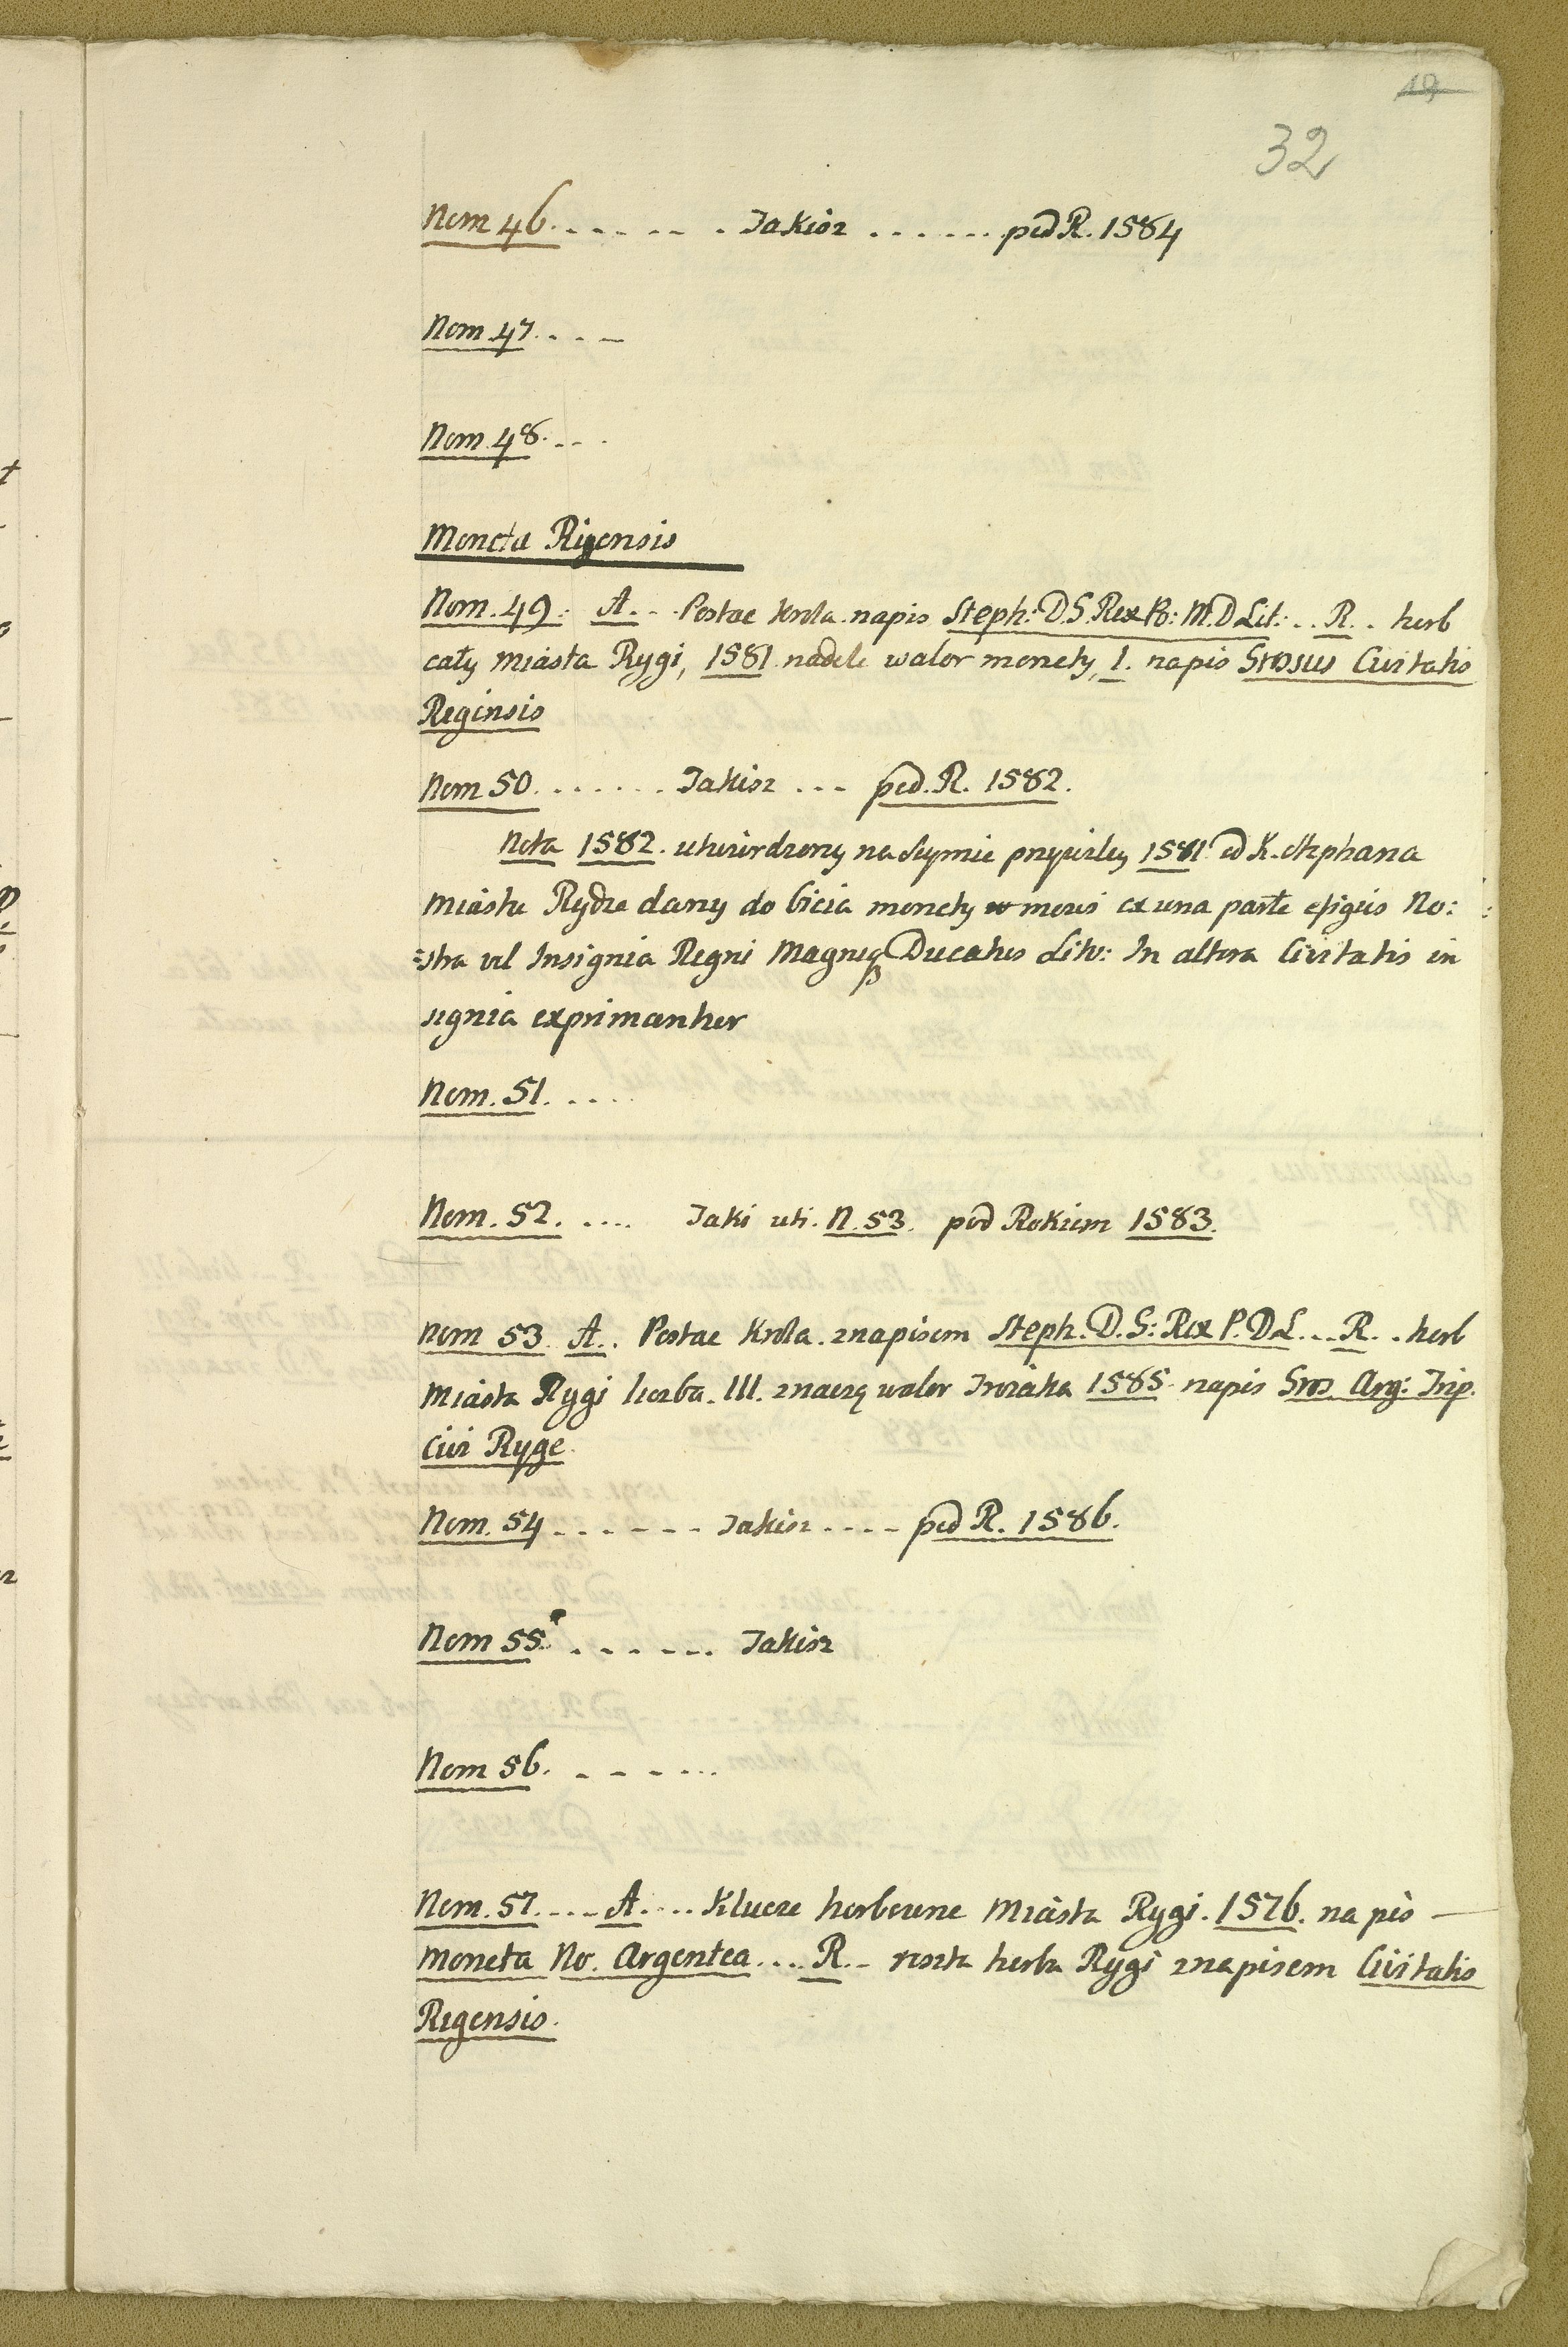 19
32
Nom 46. . . . . . . Jakisz . . . . . . . pod R. 1584
Nom. 47. . . .
Nom. 48. . . .
Moneta Rigensis
Nom. 49. A. . . Postac Krola. napis Steph: D. G. Rex Po: M. D Lit: . . R. . herb
cały Miasta Rygi, 1581. nadole walor monety, I. napis Grossus Civitatis
Reginsis
Nom 50. . . . . . . Jakisz . . . pod. R. 1582.
Nota 1582. utwierdzony na Seymie przywiley 1581 od K. Stephana
Miastu Rydze dany do bicia monety mowi ex una parte efigies No:
:stra vel Insignia Regni Magniq Ducatus Litv: In altera Civitatis in
signia exprimantur
Nom. 51. . . . .
Nom. 52. . . . . Jaki uti. N. 53. pod Rokiem 1583.
Nom 53. A. . Postac Krola. znapisem Steph. D. G: Rex P. D L. . . R. . herb
Miasta Rygi liczba. III. znaczy walor Trojaka 1585. napis Gros. Arg: Trip.
Civi Ryge.
Nom. 54 . . . . . . Jakisz . . . . pod R. 1586.
Nom 55. . . . . . . Jakisz
Nom 56. . . . . . .
Nom. 57. . . . A. . . . Klucze herbowne Miasta Rygi. 1576. napis —
Moneta No. Argentea . . . . R. . reszta herbu Rygi znapisem Civitatis
Rigensis.